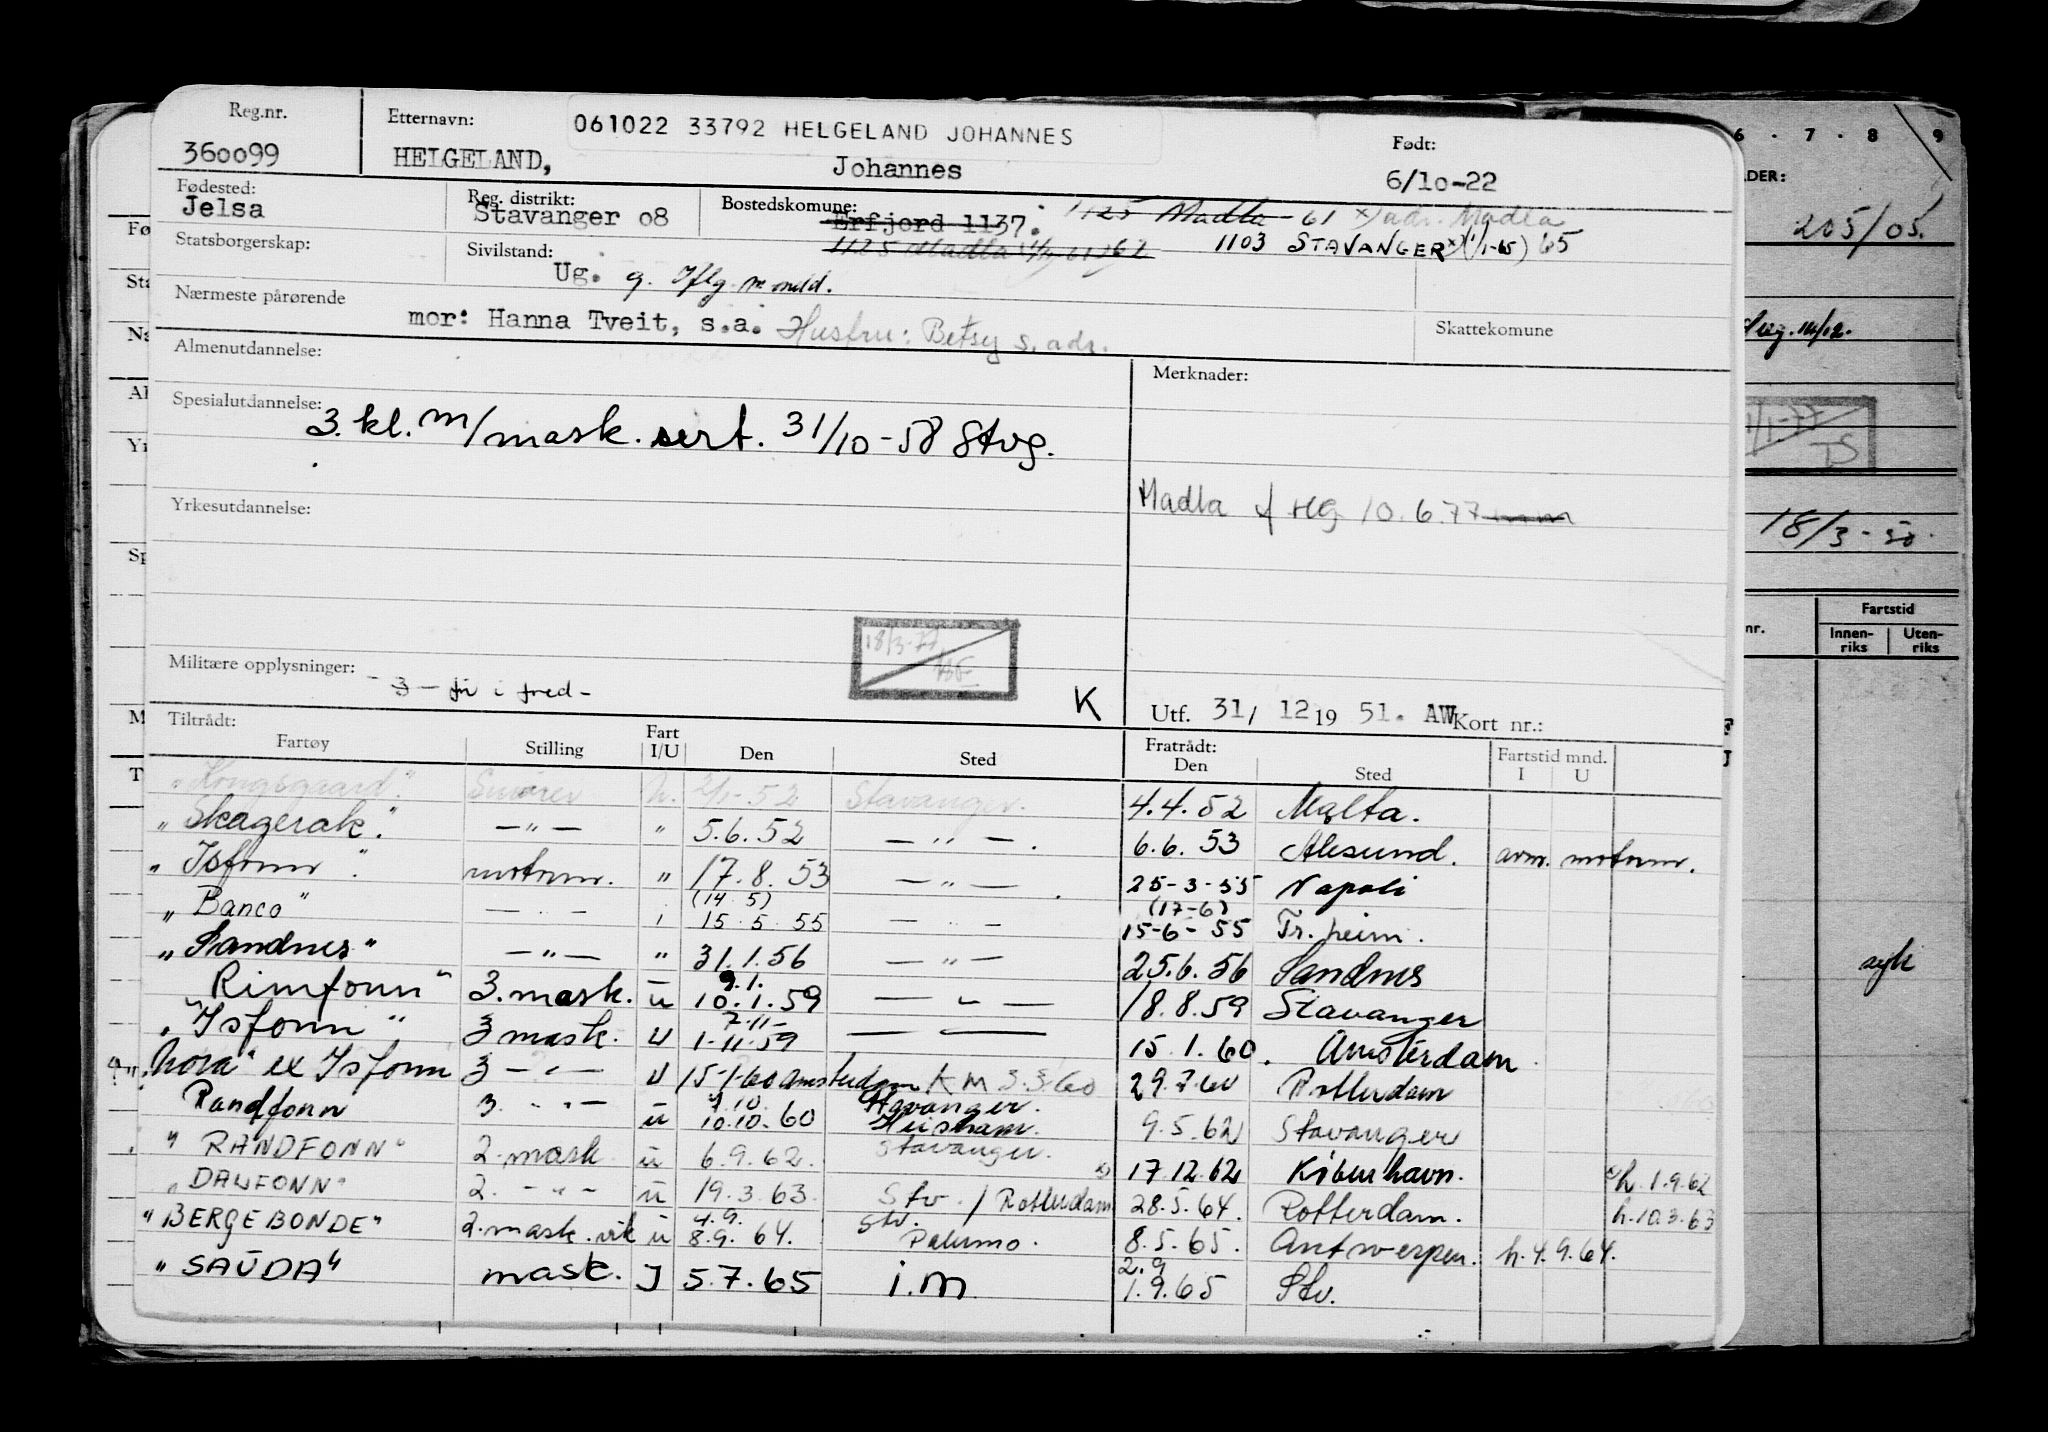 Reg.nr. Etternavn: 061022 33792 HELGELAND JOHANNES Født:
360099 HELGELAND, Johannes 6/10-22
Fødested: Reg. distrikt: Bostedskomune: 1125 Madla 61 x) adr. Madla
Jelsa Stavanger 08 Erfjord 1137.
Statsborgerskap: Sivilstand: 1125 Madla 1103 STAVANGER x) (1/1-65) 65
Ug. g. Iflg. m
Nærmeste pårørende
mor: Hanna Tveit, s.a. Hustru: Betsy s. adr. Skattekomune
Almenutdannelse: Merknader:
Spesialutdannelse:
3. kl. m/mask. sert. 31/10-58 Stvg.
Madla f Hg 10.6.77
Yrkesutdannelse:
18/3-77
Militære opplysninger:
- 3 - før i fred - K
Utf. 31/ 12 19 51. AW Kort nr.:
Tiltrådt: Fratrådt:
Fartøy Stilling Fart I/U Den Sted Den Sted Fartstid mnd. I U
"Kongsgaard" Smører u. 2/1-52 Stavanger. 4.4.52 Malta.
"Skagerak." —"— " 5.6.52 —"—. 6.6.53 Ålesund. avm. motorm.
"Isfonn" motorm. " 17.8.53 —"—. 25-3-55 Napoli
"Banco" —"— " (14.5) 15.5.55 —"— (17-6) 15-6-55 Tr.heim.
"Sandnes" —"— " 31.1.56 —"— 25.6.56 Sandnes
"Rimfonn" 3. mask. u 9.1. 10.1.59 —"— 18.8.59 Stavanger
"Isfonn" 3 mask. U 7.11- 1-11-59 —— 15.1.60. Amsterdam
"Nova" ex Isfonn 3 —"— U 15-1-60 Amsterdam KM 3.3.60 29.7.60 Rotterdam
Randfonn 3. —"— u 10. 10.10.60 Stavanger. 9.5.62 Stavanger
"RANDFONN" 2. mask u 6.9.62. Stavanger. x) 17.12.62 København. x) h. 1.9.62
"DAUFONN" 2. —"— u 19.3.63. Stv. / Rotterdam 28.5.64. Rotterdam. h. 10.3.63
"BERGEBONDE" 2. mask. vik u 4.9. 8.9.64. Stv. Palermo. 8.5.65. Antwerpen. h. 4.9.64.
"SAUDA" mask. J 5.7.65 i.m 2.9 1.9.65 Stv.
6 · 7 · 8 9
ADER:
205/05.
1/1-77
TS
18/3-50.
nr. Fartstid
Innen-riks Uten-riks